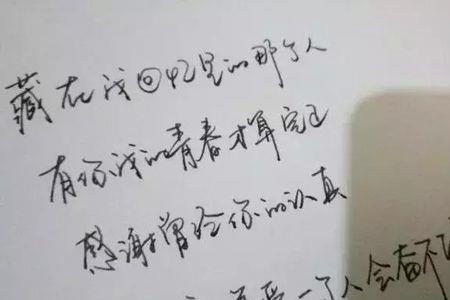 藏在我回忆里的那个人
有你我的青春才算完已
感谢曾给你的认真
一个人会奋不